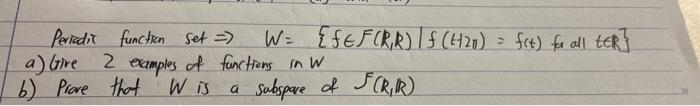 Periodic function set => W = {f∈F(R,R) | f(t+2π) = f(t) for all t∈R}
a) Give 2 examples of functions in W
b) Prove that W is a subspace of F(R,R)